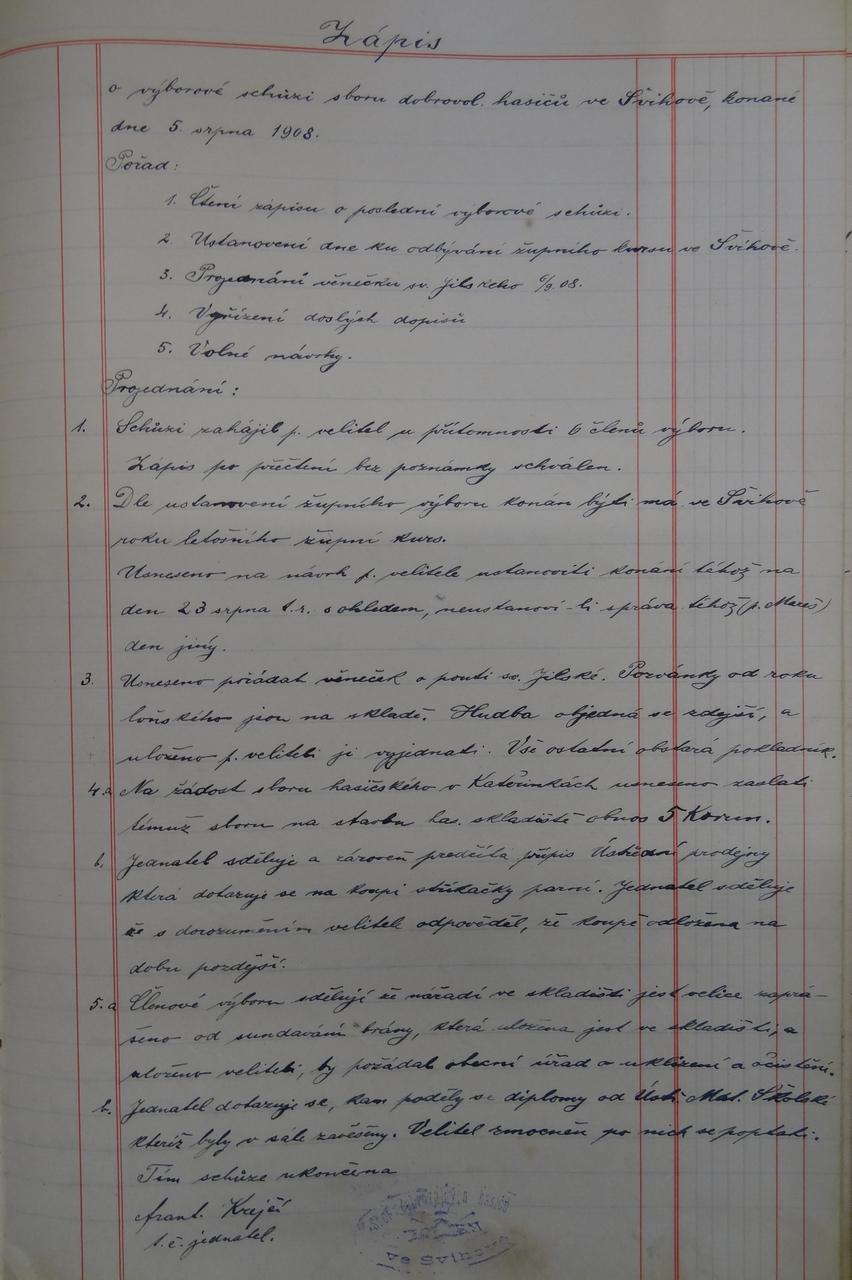 Zápis
o výborové schůzi sboru dobrovol. hasičů ve Švihově, konané
dne 5. srpna 1908.
Pořad:
1. Čtení zápisu o poslední výborové schůzi.
2. Ustanovení dne ku odbývání župního kursu ve Švihově.
3. Projednání věnečku sv. Jilského 6/9 08.
4. Vyřízení došlých dopisů
5. Volné návrhy.
Projednání:
1. Schůzi zahájil p. velitel u přítomnosti 6 členů výboru.
Zápis po přečtení bez poznámky schválen.
2. Dle ustanovení župního výboru konán býti má ve Švihově
roku letošního župní kurs.
Usneseno na návrh p. velitele ustanoviti konání téhož na
den 23 srpna t.r. s ohledem, neustanoví-li správa téhož (p. Mareš)
den jiný.
3. Usneseno pořádat věneček o pouti sv. Jilské. Pozvánky od roku
loňského jsou na skladě. Hudba objedná se zdejší, a
uloženo p. veliteli ji vyjednati. Vše ostatní obstará pokladník.
4. a Na žádost sboru hasičského v Kateřinkách usneseno zaslati
témuž sboru na stavbu has. skladiště obnos 5 Korun.
b. Jednatel sděluje a zároveň předčítá přípis Ústřední prodejny
která dotazuje se na koupi stříkačky parní. Jednatel sděluje
že s dorozuměním velitele odpověděl, že koupě odložena na
dobu pozdější.
5. a Členové výboru sdělují že nářadí ve skladišti jest velice zaprá-
šeno od sundavání brány, která uložena jest ve skladišti, a
uloženo veliteli, by požádal obecní úřad o uklizení a očistění.
b. Jednatel dotazuje se, kam poděly se diplomy od Ústř. Mat. Školské
kteréž byly v sále zavěšeny. Velitel zmocněn po nich se poptati.
Tím schůze ukončena
Frant. Krejčí
t.č. jednatel.
ve Švihově